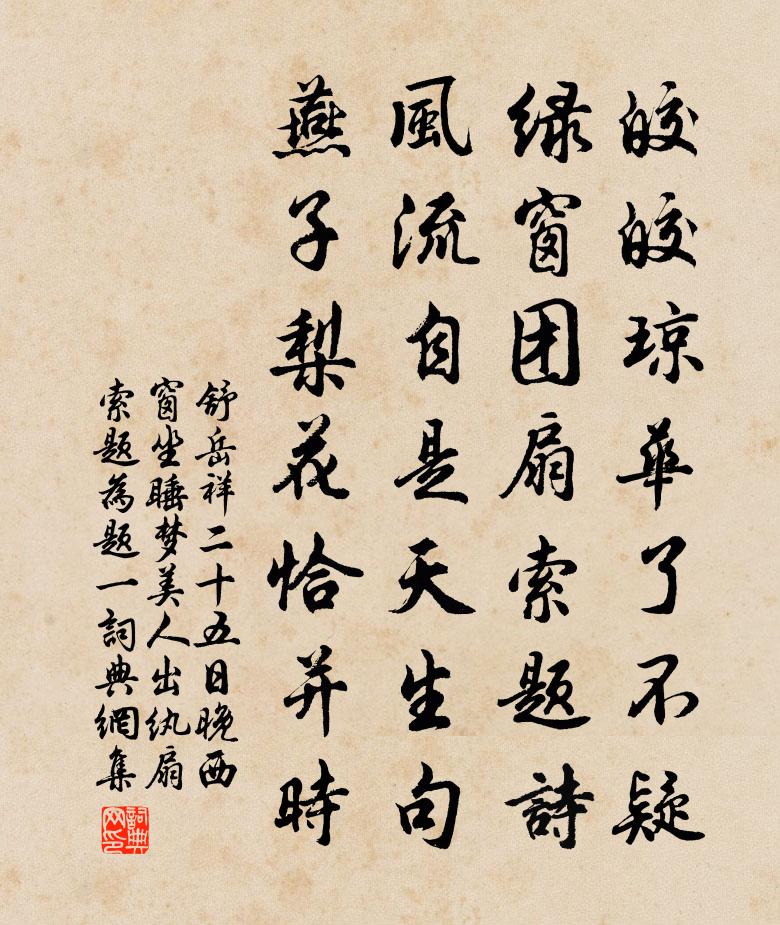 皎皎琼華了不疑
緑窗团扇索题詩
風流自是天生句
燕子梨花恰并時
舒岳祥二十五日晚西
窗坐睡梦美人出纨扇
索题為题一詞典網集
詞典网印